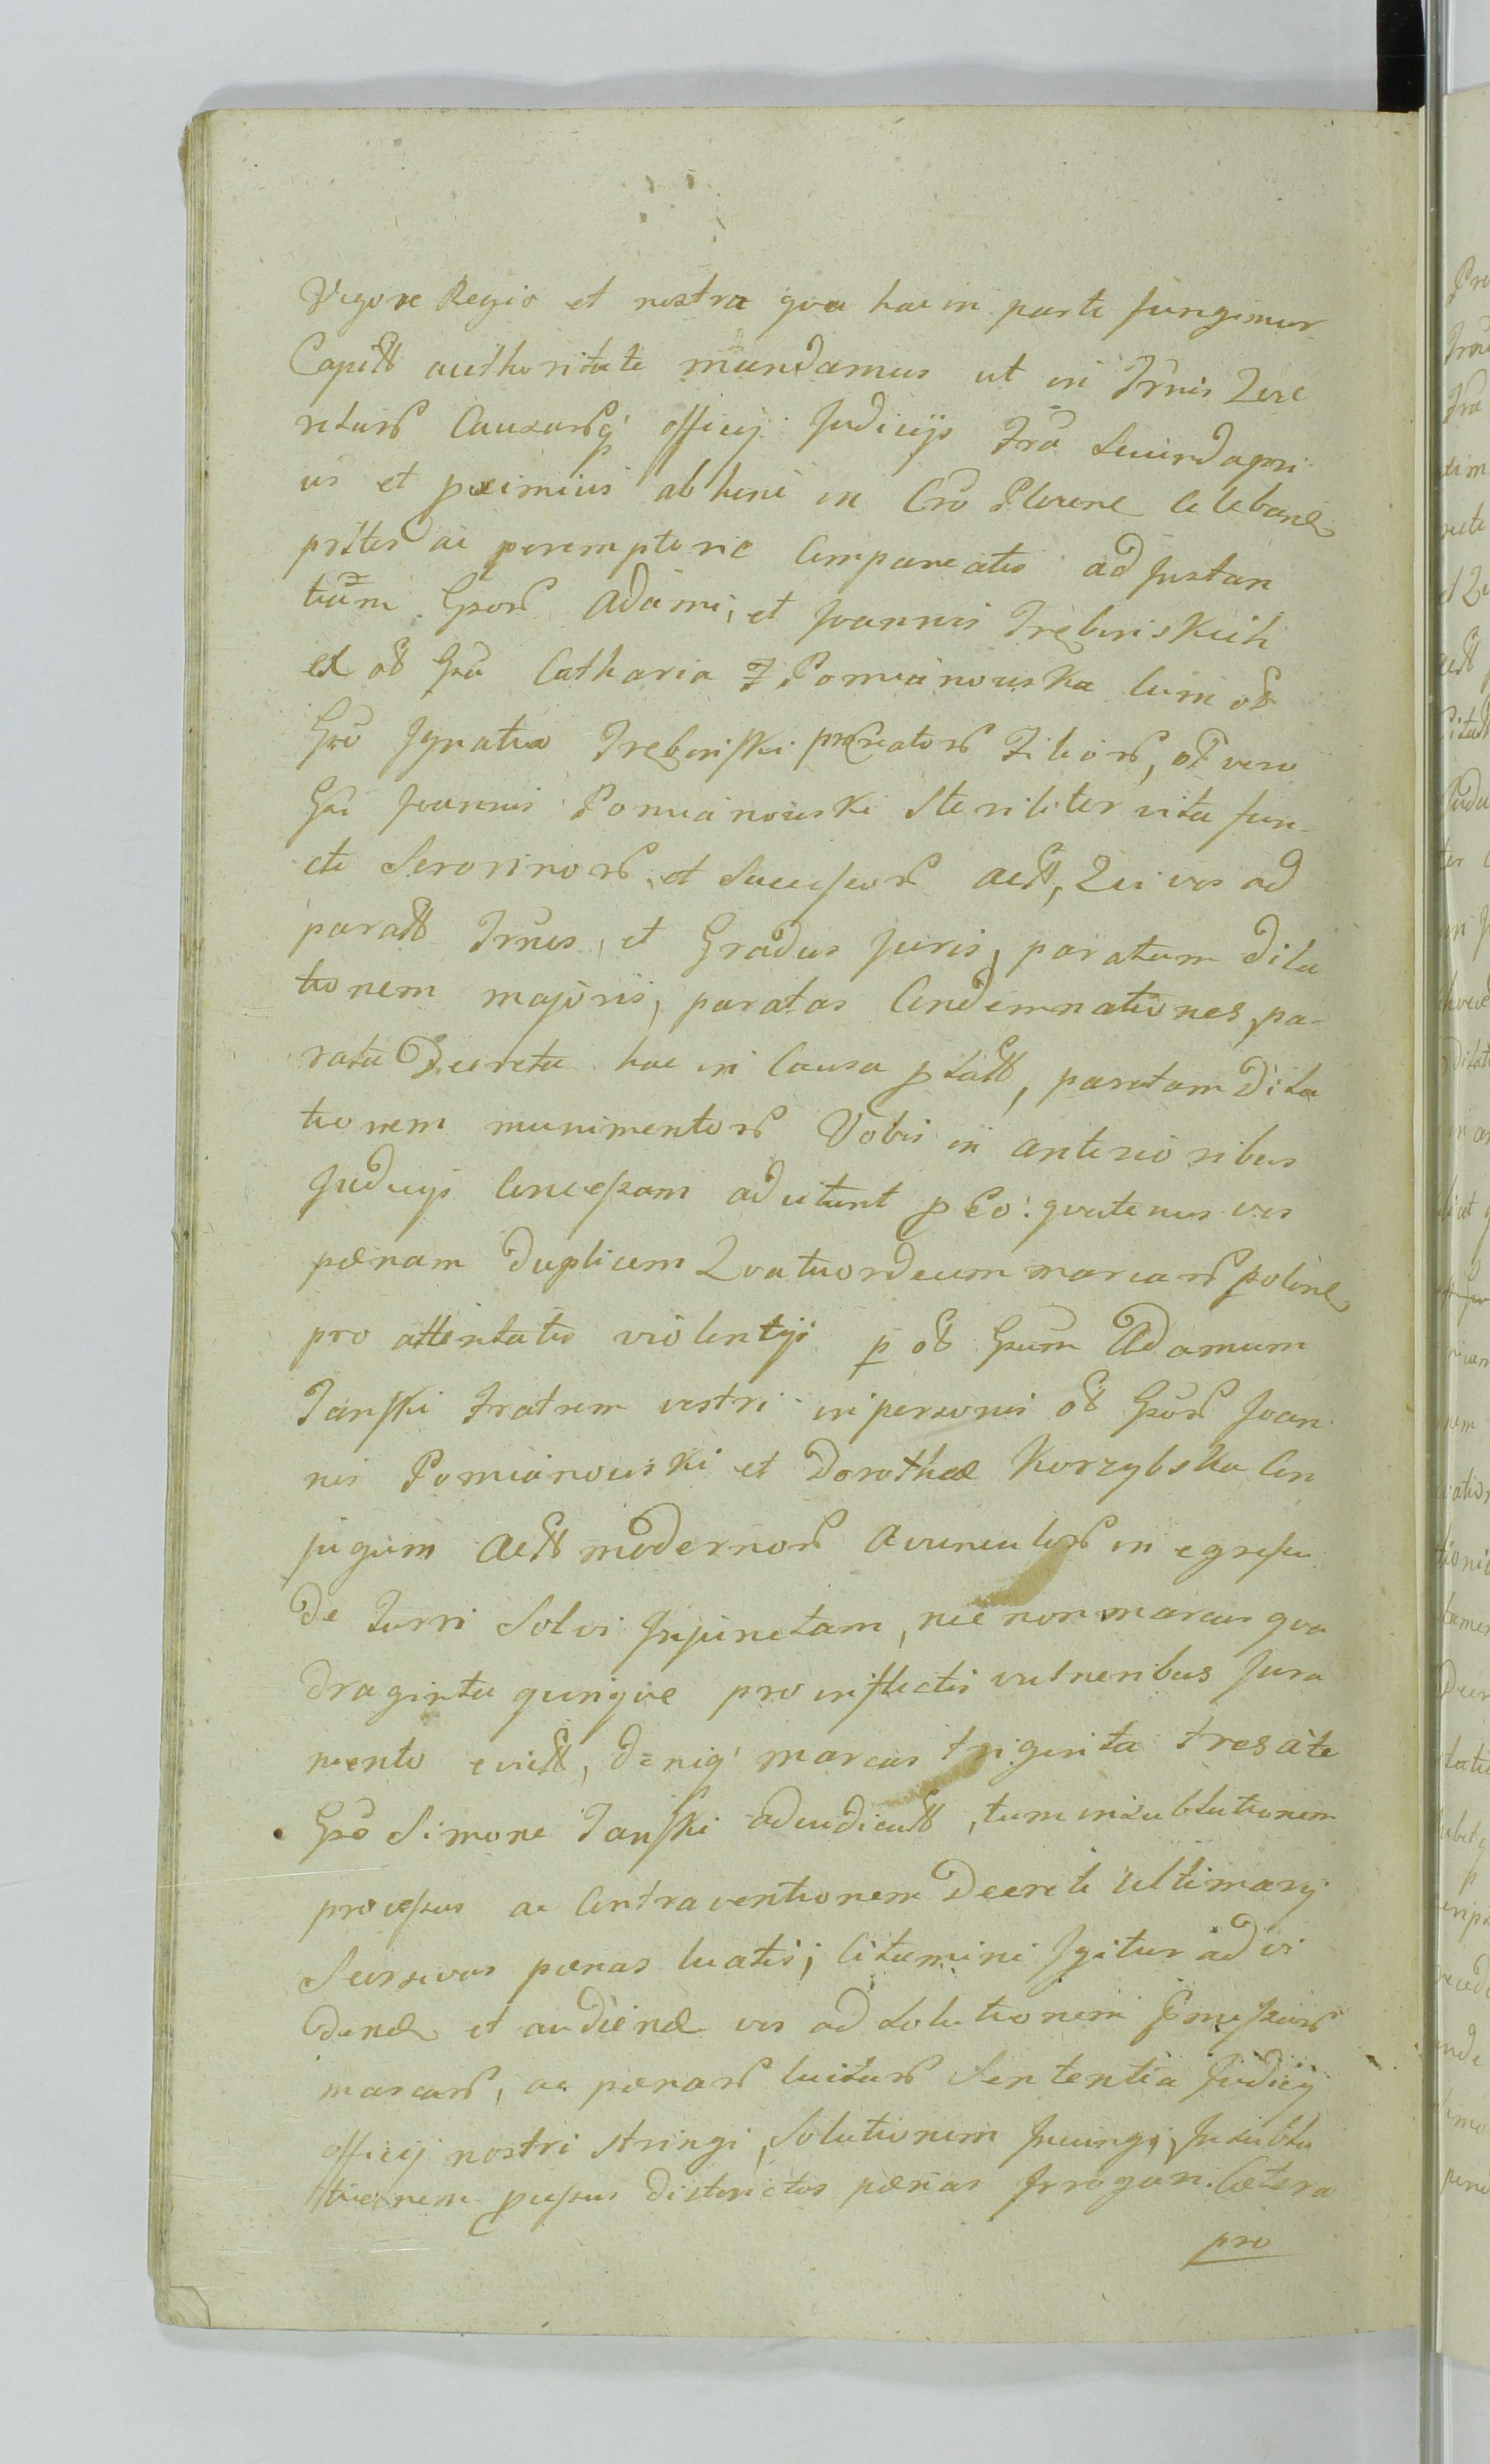 Vigore Regio et nostra qva hac in parte fungimur
Capitt authoritate mandamus ut in Trnis Qere
relars Causarsq officij Judicijs Fra Secunda pri
us et pximius ab hinc in Cro Plocne Celebrane
priter ac peremptorie Compareatis ad Jnstan
tiam Gsors Adami, et Joannis Trębinskich
ex ott Gsa Catharia F Pomianowska Cum ott
Gso Jgnatio Trębinski procreators Filiors, ott vero
Gsi Joannis Pomianowski Steriliter vita fun-
cti Sororinors et Successors Actt, Qui vos ad
paratt Trnos, et Gradus Juris, paratam Dila
tionem majoris, paratas Condemnationes, pa-
rata Decreta hac in Causa platt, paratam Dila
tionem munimentors Vobis in anterioribus
Judicijs Concessam adcitant p Eo: qvatenus vos
pænam Duplicem Qvatuordecim marcars poline
pro attentatis violentijs p ott Gsum Adamum
Tański Fratrem vestri in personis ott Gsors Joan
nis Pomianowski et Dorotheæ Korzybska Con
jugum Actt modernors Avunculors in egressu
De Turri Solvi Jnjunctam, nec non marcas qva
draginta qvinqve pro inflictis vulneribus Jura
mento evictt, deniq marcas triginta tres a te
Gso Simone Tański adjudicatt, tum insublationem
processus ac Contraventionem Decreti Ultimarij
Seorsivas pænas luatis; Citamini Jgitur ad vi
Dend et audiend vos ad Solutionem Pmissars
marcars, ac pænars luitars Sententia Judicij
officij nostri stringi, Solutionem Jnjungi, Jnsubla
tionem pcessus districtas pænas Jrrogari. Cætera
pro